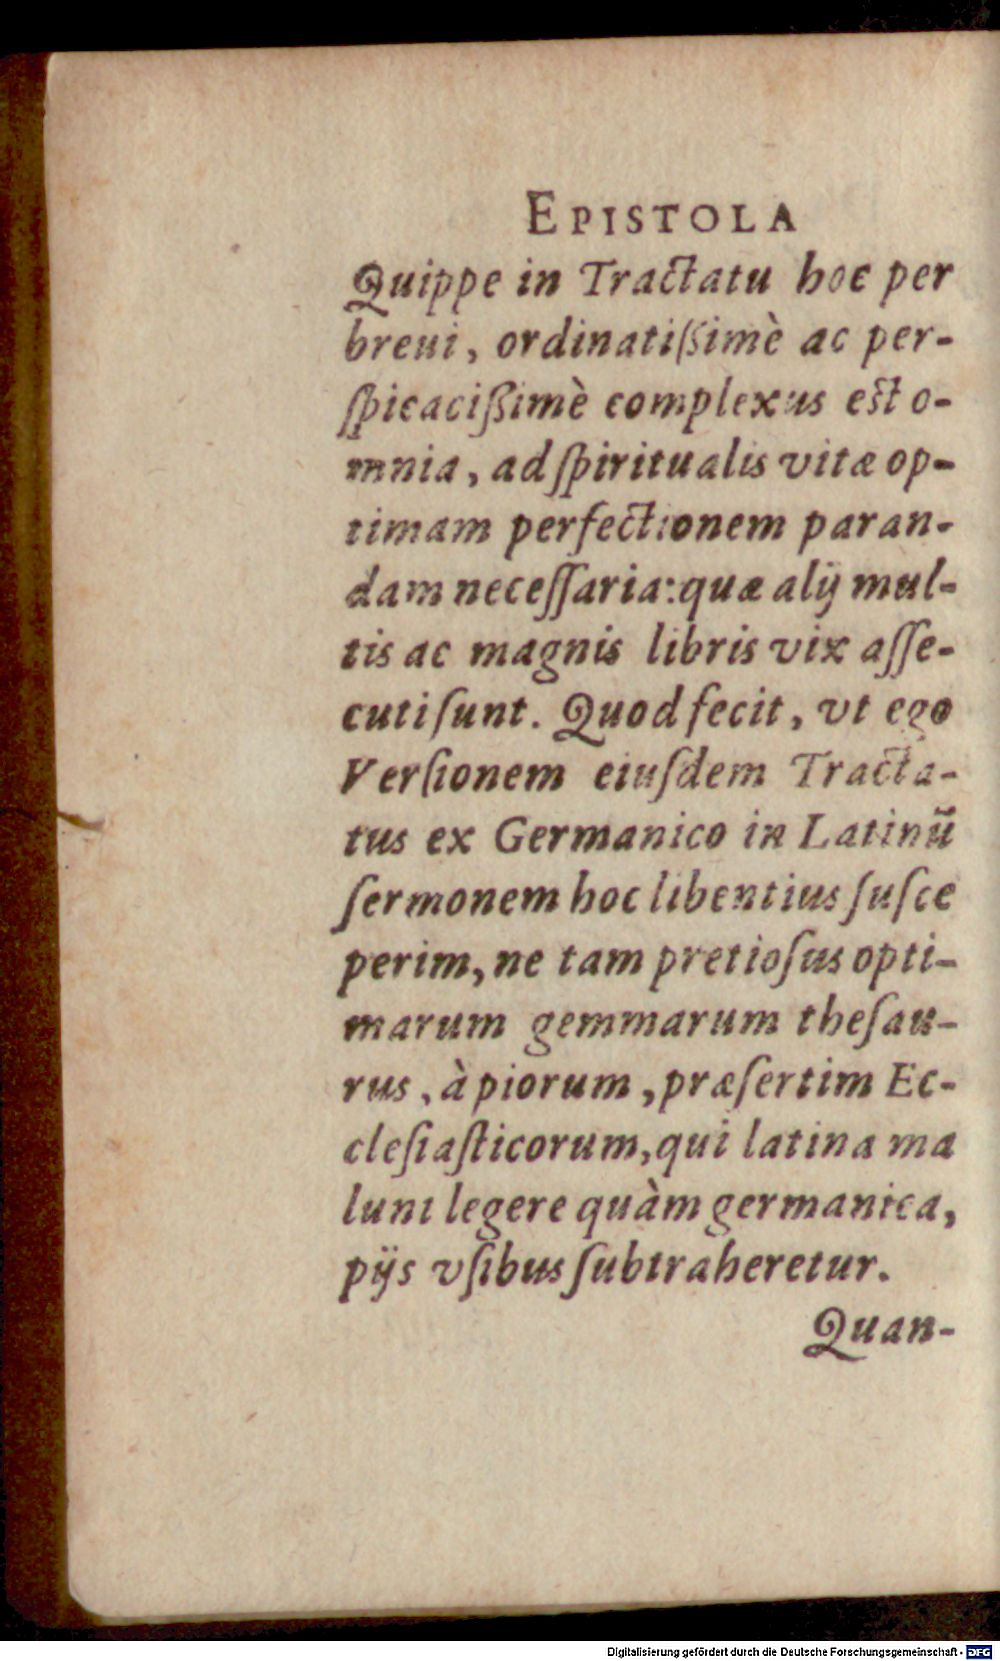 EPISTOLA
Quippe in Tractatu hoc per
breui, ordinatiſsimè ac per-
ſpicacißimè complexus est o-
mnia, ad ſpiritualis vitæ op-
timam perfectionem paran-
dam neceſſaria: quæ alij mul-
tis ac magnis libris vix aſſe-
cuti ſunt. Quod fecit, vt ego
Verſionem eiuſdem Tracta-
tus ex Germanico in Latinũ
ſermonem hoc libentius ſuſce
perim, ne tam pretioſus opti-
marum gemmarum theſau-
rus, à piorum, præſertim Ec-
cleſiaſticorum, qui latina ma
lunt legere quàm germanica,
pijs vſibus ſubtraheretur.
Quan-
Digitalisierung gefördert durch die Deutsche Forschungsgemeinschaft - DFG